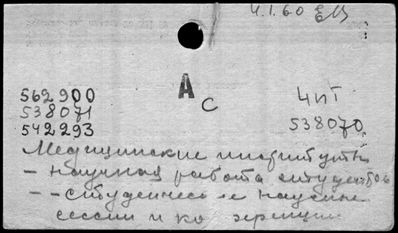 4.1.60
А
С
562900
538071
542293
4 пт
538070
Медицинские институты
- научная работа студентов
- - студенческие научные
сессии и конференции